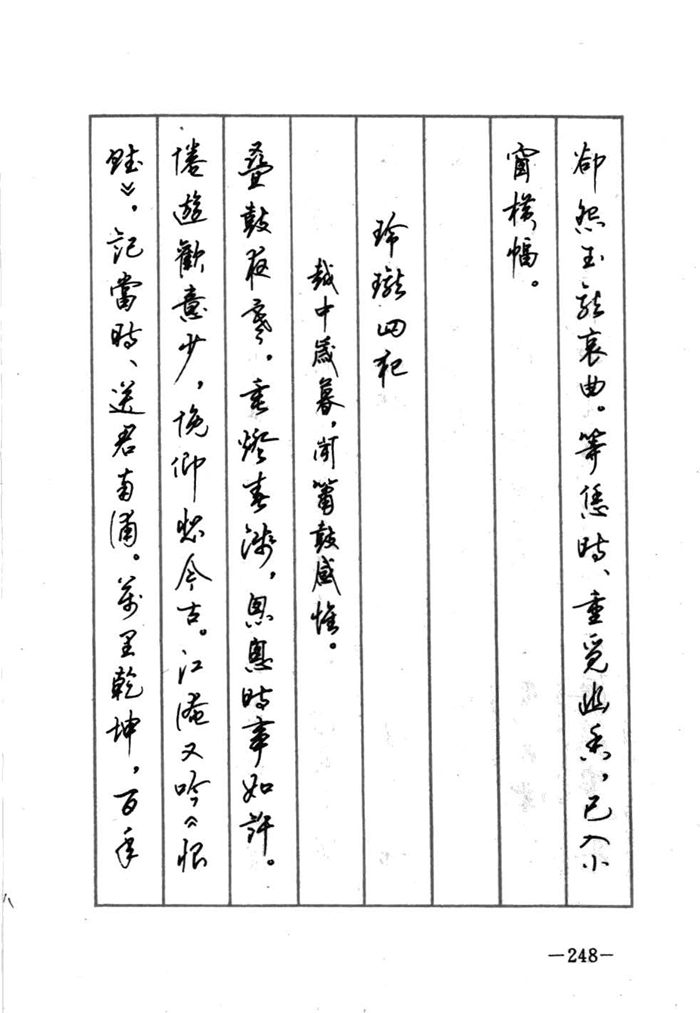 卻怨玉龍哀曲。等恁時、重覓幽香，已入小
窗橫幅。
玲瓏四犯
越中歲暮，聞簫鼓感懷。
疊鼓夜寒，垂燈春淺，匆匆時事如許。
倦遊歡意少，俛仰悲今古。江淹又吟《恨
賦》，記當時、送君南浦。萬里乾坤，百年
—248—